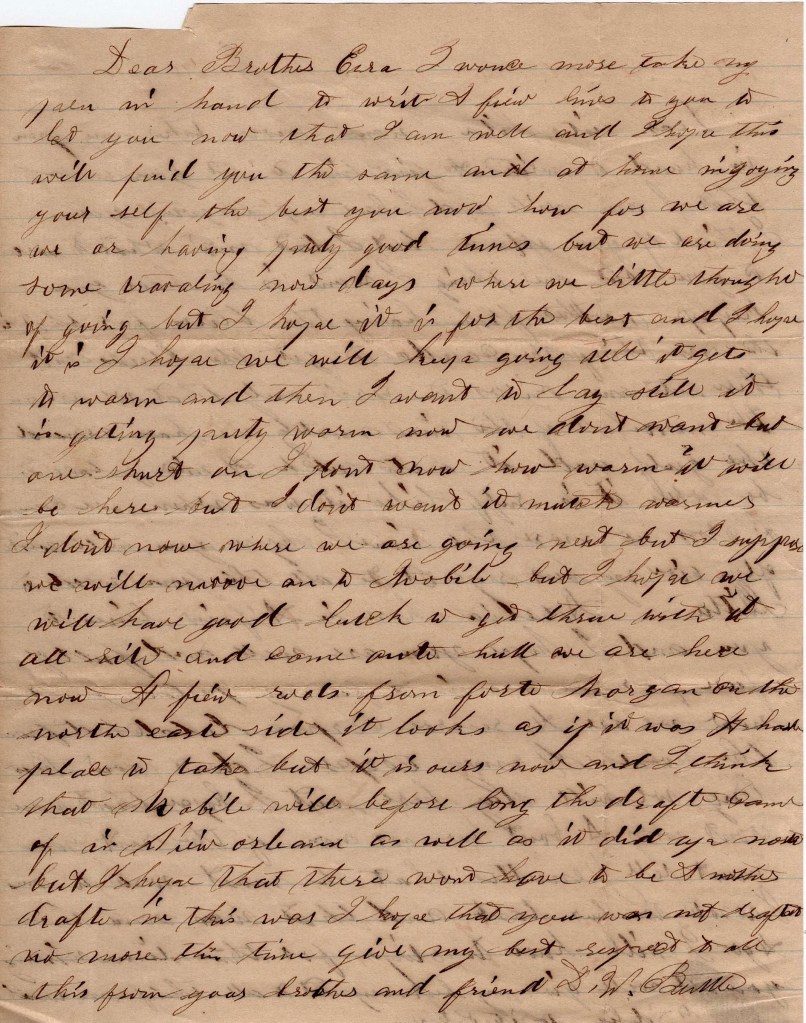 Dear Brother Ezra I wonce more take my
pen in hand to writ A fiew lines to you to
let you now that I am well and I hope this
will find you the same and at home ingoying
your self the best you now how for we are
we ar having prity good times but we are doing
some travaling now days where we little thought
of going but I hope it is for the best and I hope
it is I hope we will keep going till it gets
to warm and then I want to lay still it
is geting prity warm now we dont want but
one shurt on I dont now how warm it will
be here but I dont want it mutch warmer
I dont now where we are going next but I suppose
we will moove on to Mobile but I hope we
will have good luck to get threw with it
all and come oute hull we are here
now A fiew rods from forte Morgan on the
north easte side it looks as if it was A hard
place to take but it is ours now and I think
that Mobile will before long the drafte came
of in Niew orleans as well as it did up north
but I hope that there wont have to be A nother
drafte in this war I hope that you was not drafted
no more this time give my best respect to all
this from your brother and friend D. W.